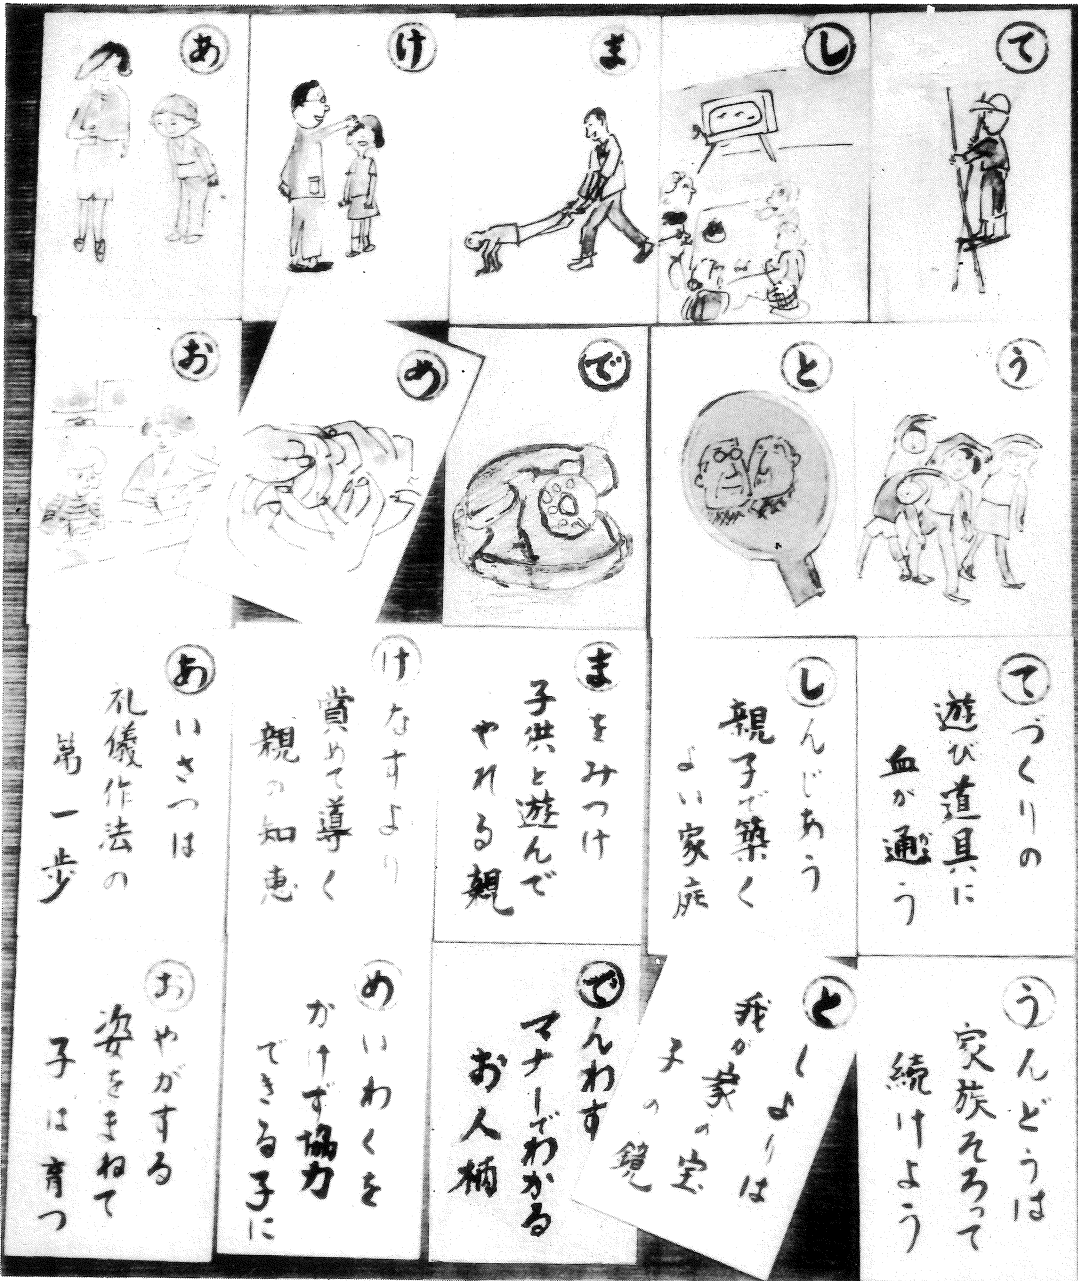 あ
け
ま
し
て
お
め
で
と
う
あいさつは
礼儀作法の
第一歩
けなすより
賞めて導く
親の知恵
まをみつけ
子供と遊んで
やれる親
しんじあう
親子で築く
よい家庭
てづくりの
遊び道具に
血が通う
おやがする
姿をまねて
子は育つ
めいわくを
かけず協力
できる子に
でんわす
マナーでわかる
お人柄
としよりは
我が家の宝
子の鏡
うんどうは
家族そろって
続けよう